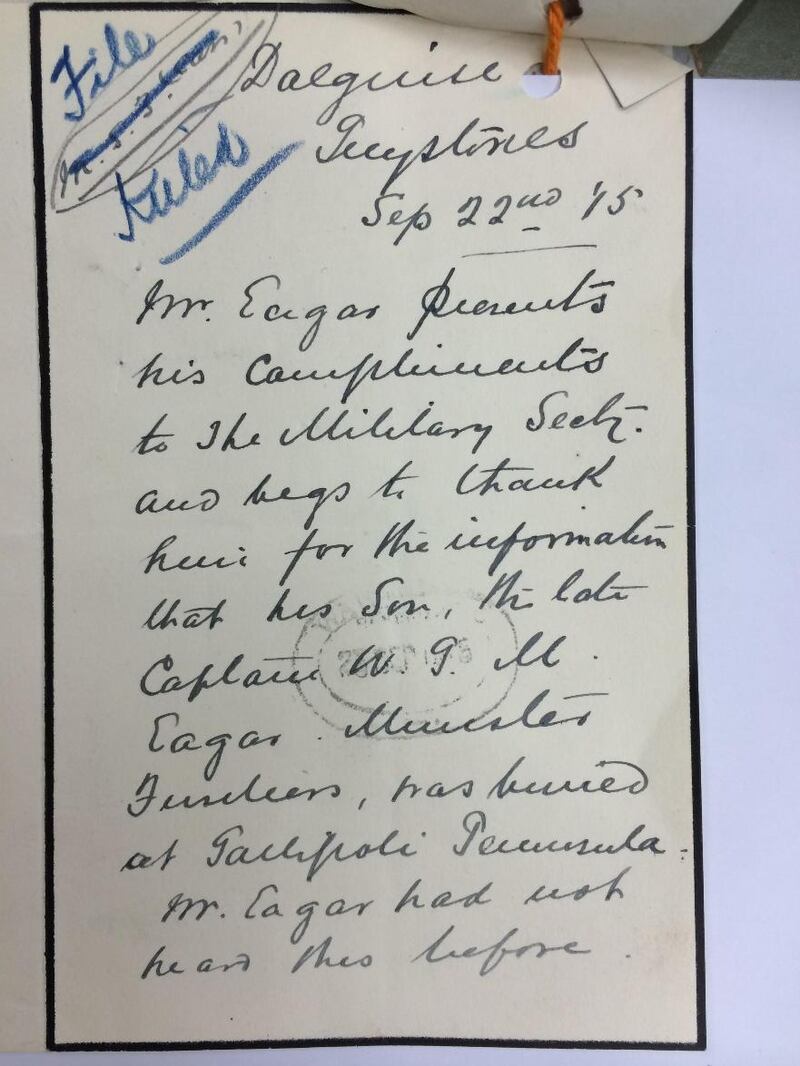 File
Dalguise
Greystones
Sep 22nd '15
Mr. Eagar presents
his Compliments
to The Military Secty.
and begs to thank
him for the information
that his Son, the late
Captain W. G. M.
Eagar. Munster
Fusiliers, was buried
at Gallipoli Peninsula.
Mr. Eagar had not
heard this before.